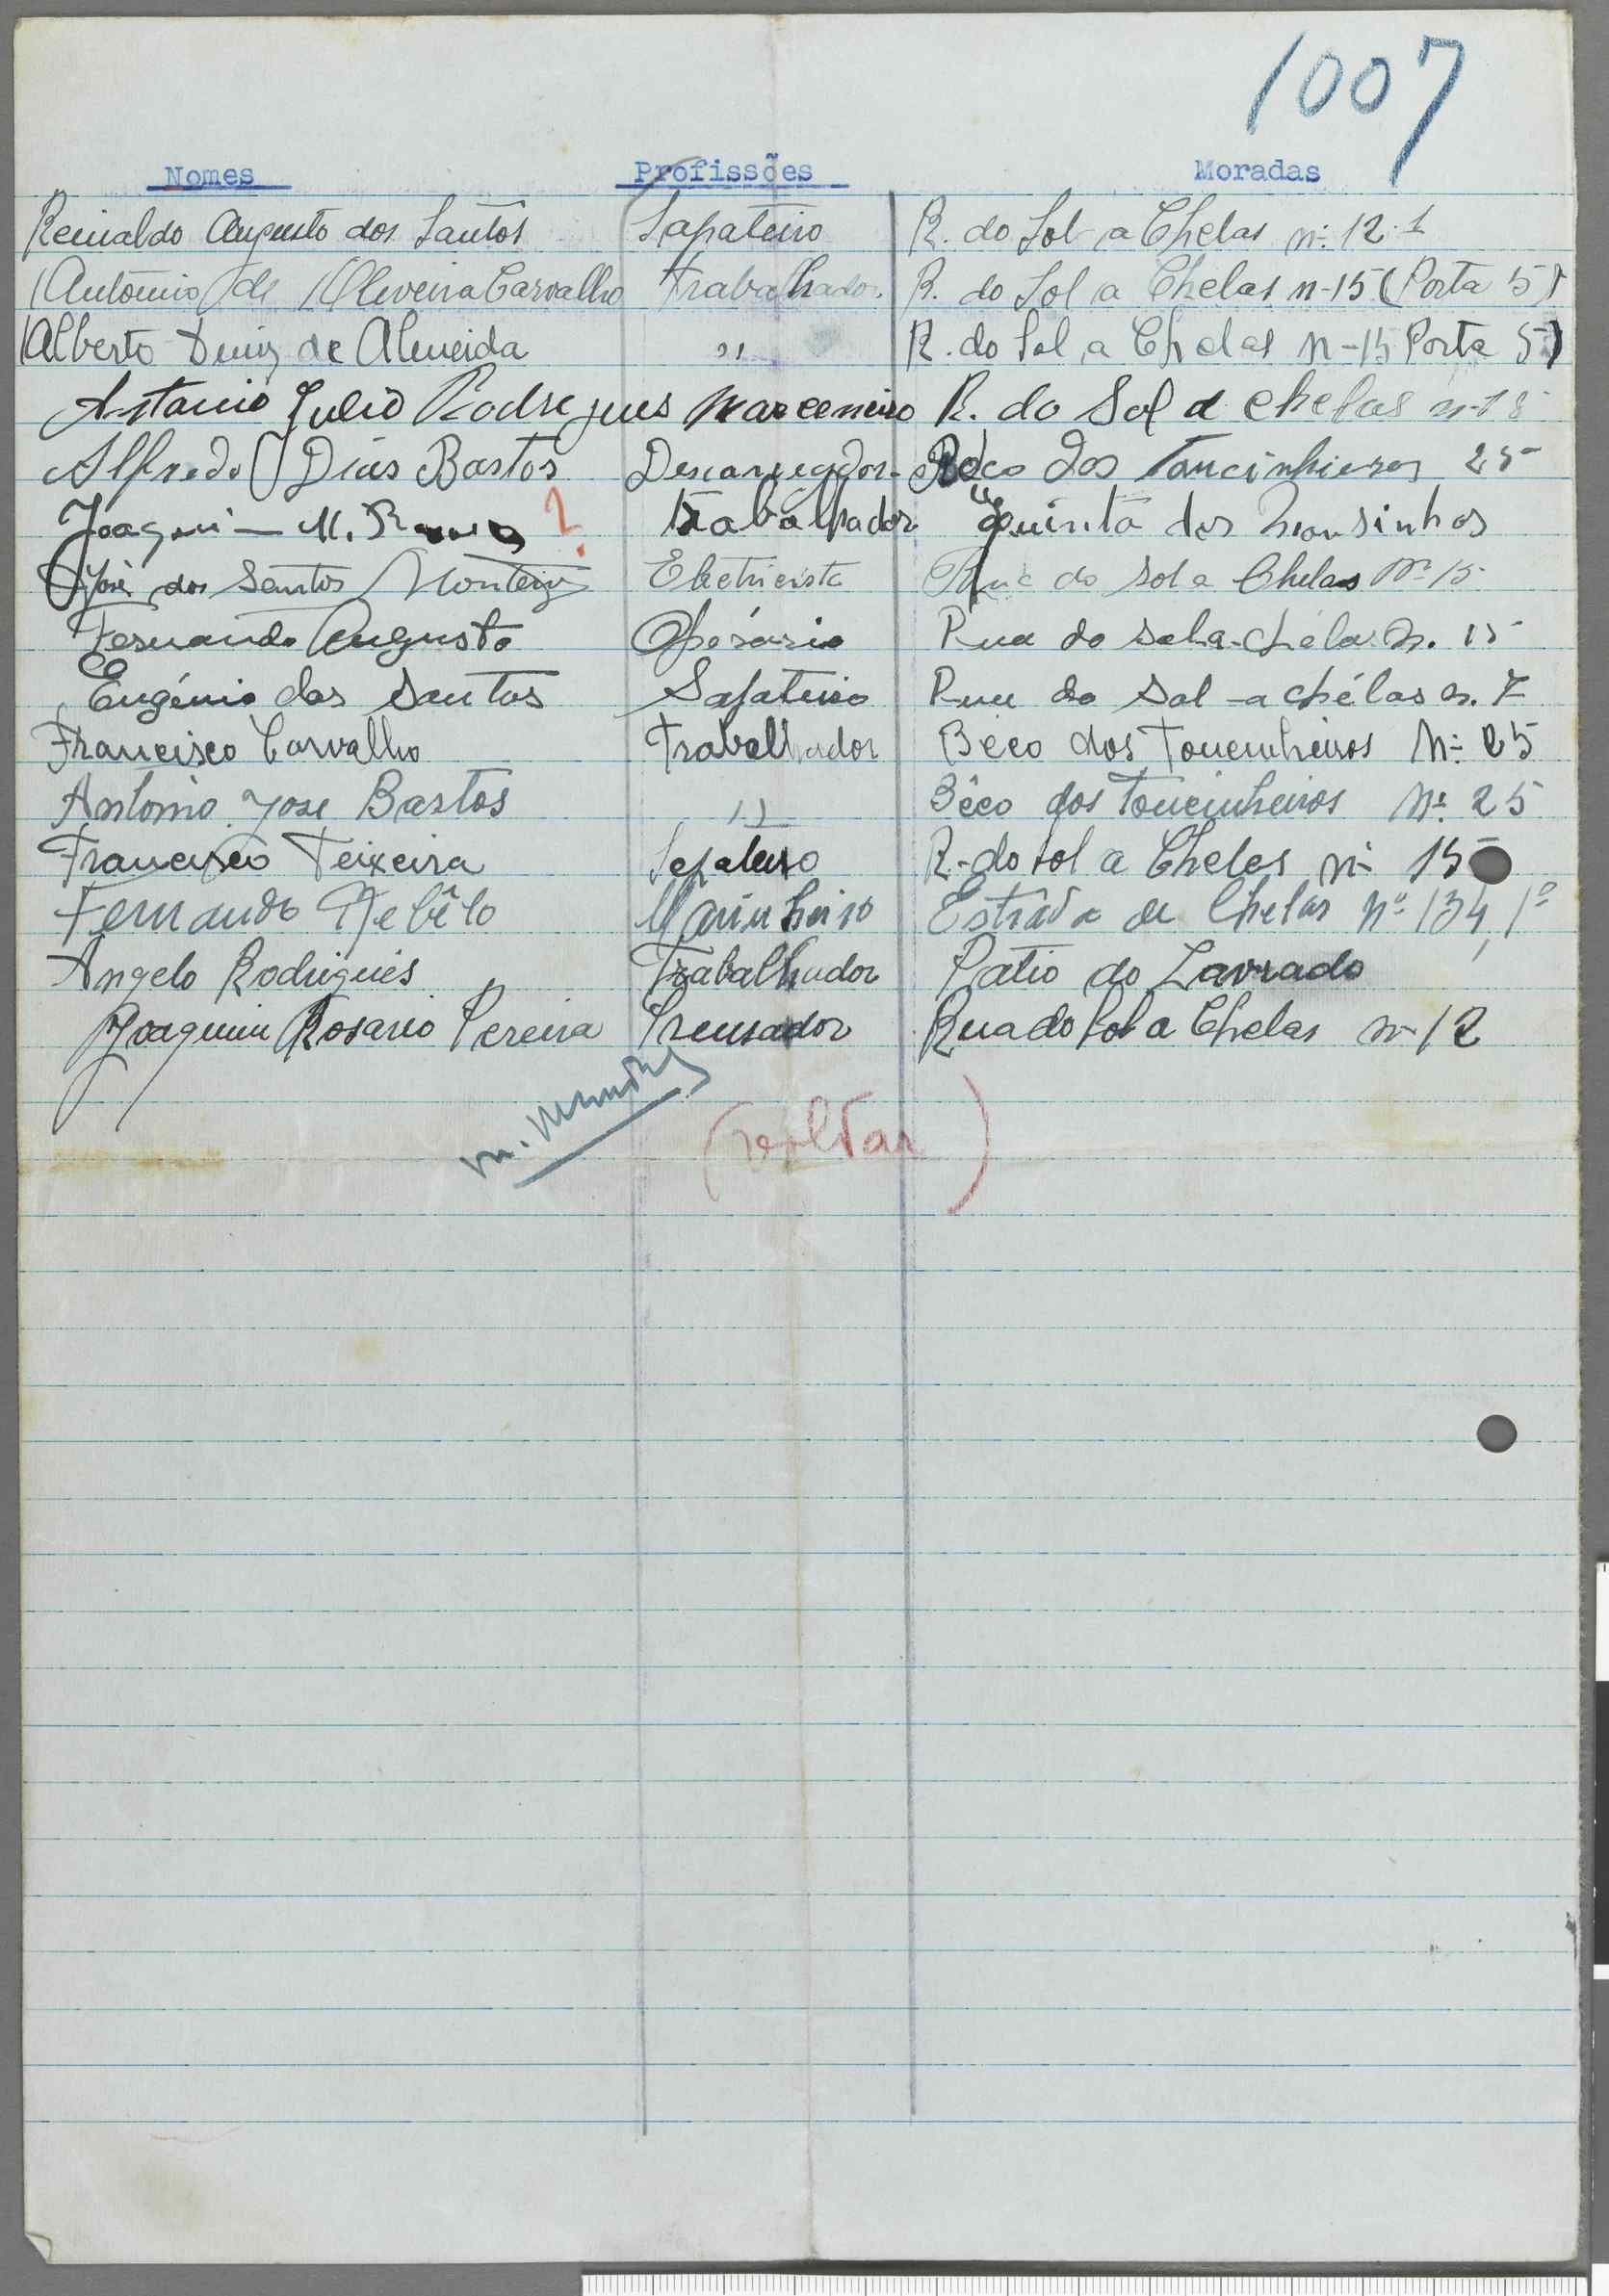 1007
Nomes Profissões Moradas
Reinaldo Augusto dos Santos Sapateiro R. do Sol a Chelas nº 12-1
António de Oliveira Carvalho Trabalhador R. do Sol a Chelas n-15 (Porta 5)
Alberto Diniz de Almeida " R. do Sol a Chelas n-15 Porta 5)
António Julio Rodrigues Marceneiro R. do Sol a Chelas n-18
Alfredo Dias Bastos Descarregador Bêco dos Toucinheiros 25
Joaquim M. ? Trabalhador Quinta dos
José dos Santos Monteiro Eletricista Rua do Sol a Chelas Nº 15
Fernando Augusto Operário Rua do Sol-a-Chélas n. 15
Eugénio dos Santos Sapateiro Rua do Sol-a chélas n. 7
Francisco Carvalho Trabalhador Bêco dos Toucinheiros Nº 25
Antonio José Bastos " Bêco dos Toucinheiros Nº 25
Francisco Teixeira Sapateiro R. do Sol a Chelas nº 15
Fernando Rebêlo Marinheiro Estrada de Chelas Nº 134, 1º
Angelo Rodrigues Trabalhador Patio do Lavrado
Joaquim Rosario Pereira Prensador Rua do Sol a Chelas nº 12
(voltar)